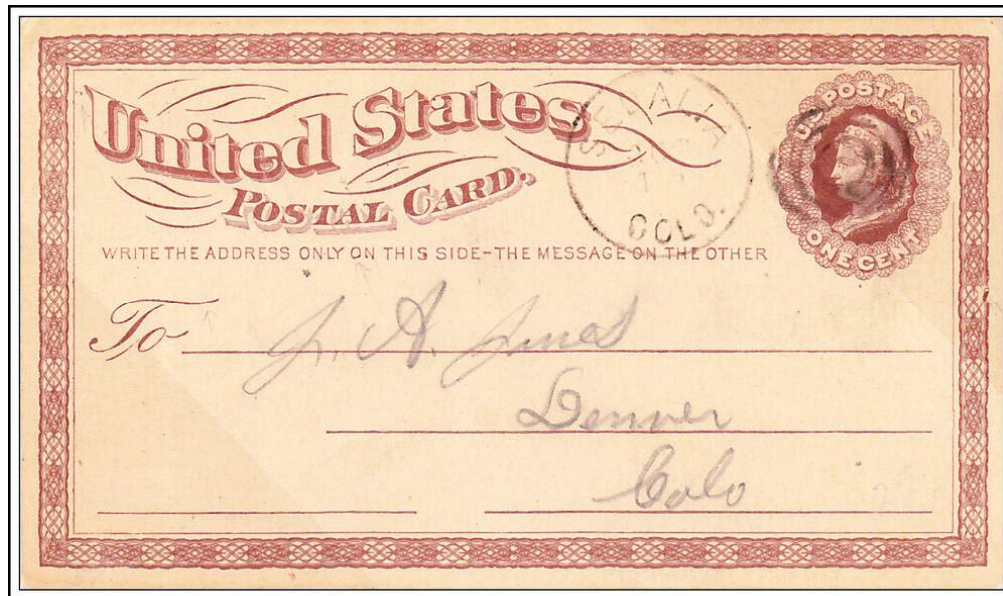 United States
POSTAL CARD.
WRITE THE ADDRESS ONLY ON THIS SIDE-THE MESSAGE ON THE OTHER
SEDALIA
COLO.
U.S. POSTAGE
ONE CENT
To J. A. Jones
Denver
Colo